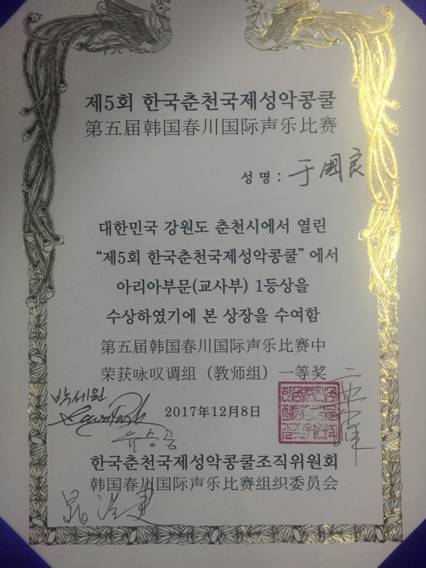 제5회 한국춘천국제성악콩쿨
第五届韩国春川国际声乐比赛
성명 : 于國良
대한민국 강원도 춘천시에서 열린
“제5회 한국춘천국제성악콩쿨” 에서
아리아부문(교사부) 1등상을
수상하였기에 본 상장을 수여함
第五届韩国春川国际声乐比赛中
荣获咏叹调组（教师组）一等奖
박세원
2017年12月8日
한국춘천국제성악콩쿨조직위원회
韩国春川国际声乐比赛组织委员会